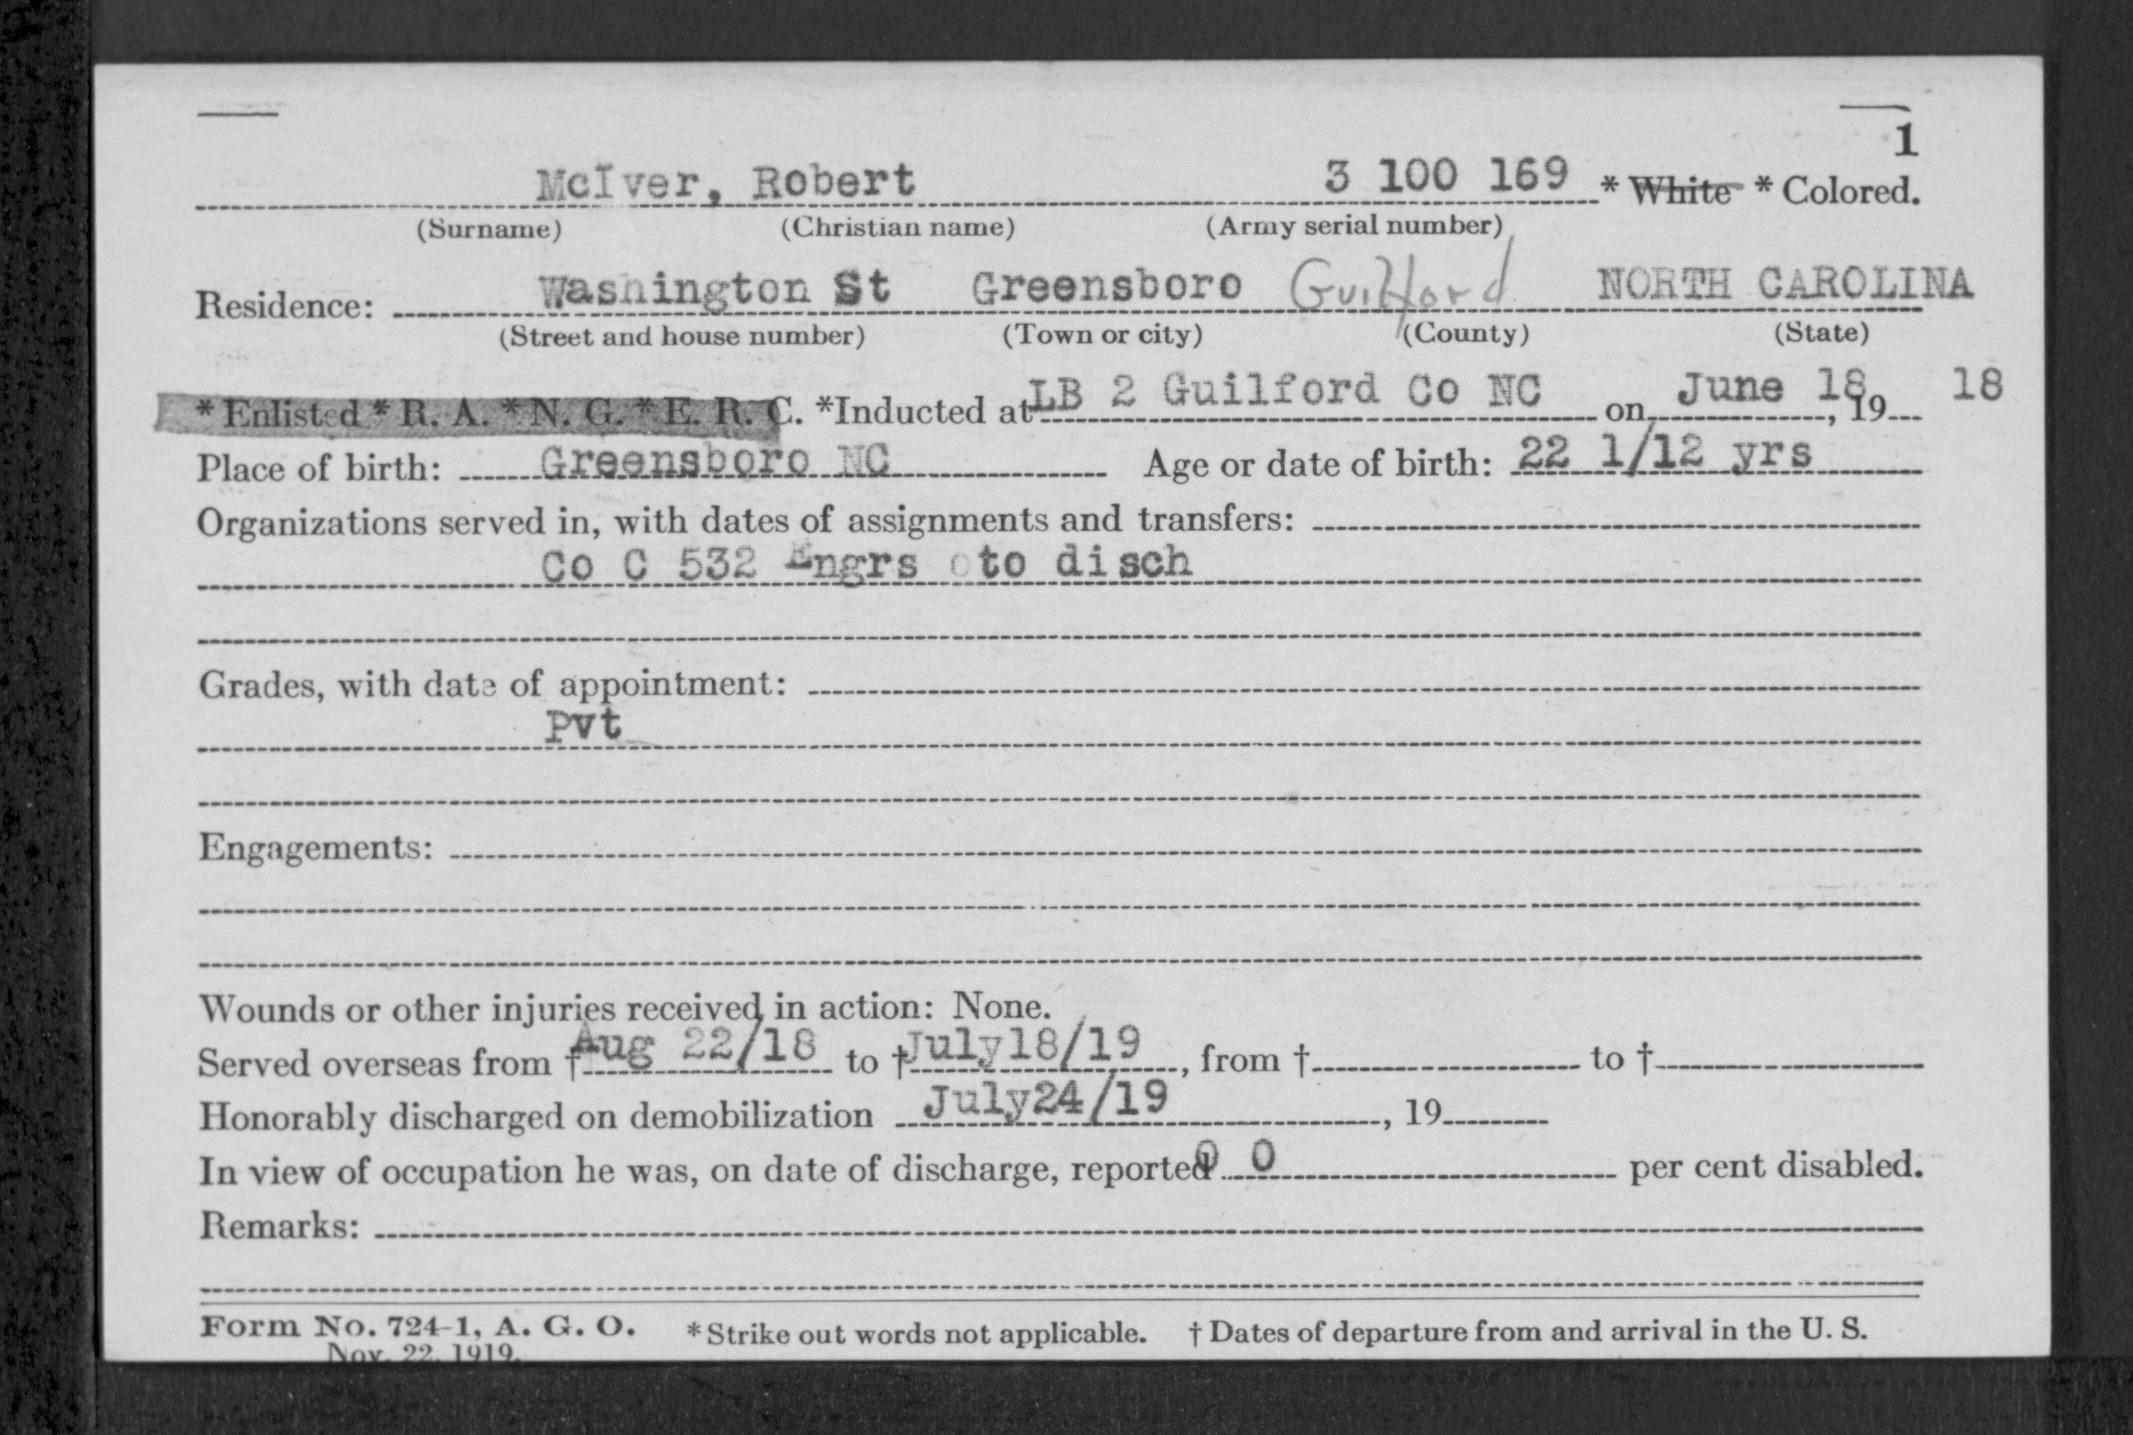 1
McIver, Robert 3 100 169 * White * Colored.
(Surname) (Christian name) (Army serial number)
Residence: Washington St Greensboro Guilford NORTH CAROLINA
(Street and house number) (Town or city) (County) (State)
* Enlisted * R. A. * N. G. * E. R. C. *Inducted at LB 2 Guilford Co NC on June 18, 19 18
Place of birth: Greensboro NC Age or date of birth: 22 1/12 yrs
Organizations served in, with dates of assignments and transfers:
Co C 532 Engrs to disch
Grades, with date of appointment:
Pvt
Engagements:
Wounds or other injuries received in action: None.
Served overseas from † Aug 22/18 to † July18/19, from † to †
Honorably discharged on demobilization July24/19, 19
In view of occupation he was, on date of discharge, reported 0 per cent disabled.
Remarks:
Form No. 724-1, A. G. O. * Strike out words not applicable. † Dates of departure from and arrival in the U. S.
Nov. 22, 1919.